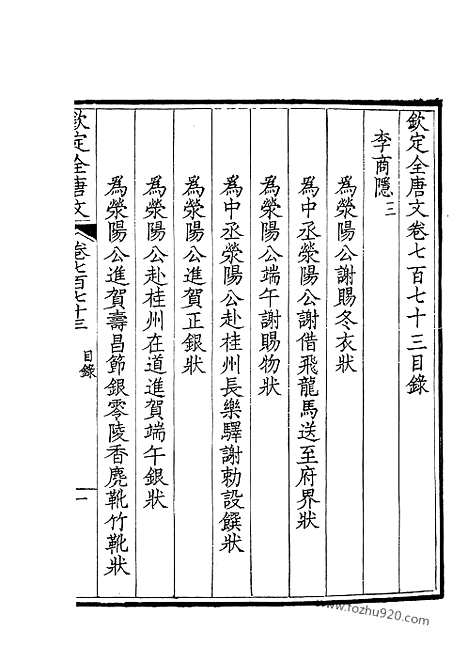 欽定全唐文卷七百七十三目錄
李商隱三
為滎陽公謝賜冬衣狀
為中丞滎陽公謝借飛龍馬送至府界狀
為滎陽公端午謝賜物狀
為中丞滎陽公赴桂州長樂驛謝勅設饌狀
為滎陽公進賀正銀狀
為滎陽公赴桂州在道進賀端午銀狀
為滎陽公進賀壽昌節銀零陵香麂靴竹靴狀
欽定全唐文 卷七百七十三 目錄 一
www.fozhu920.com